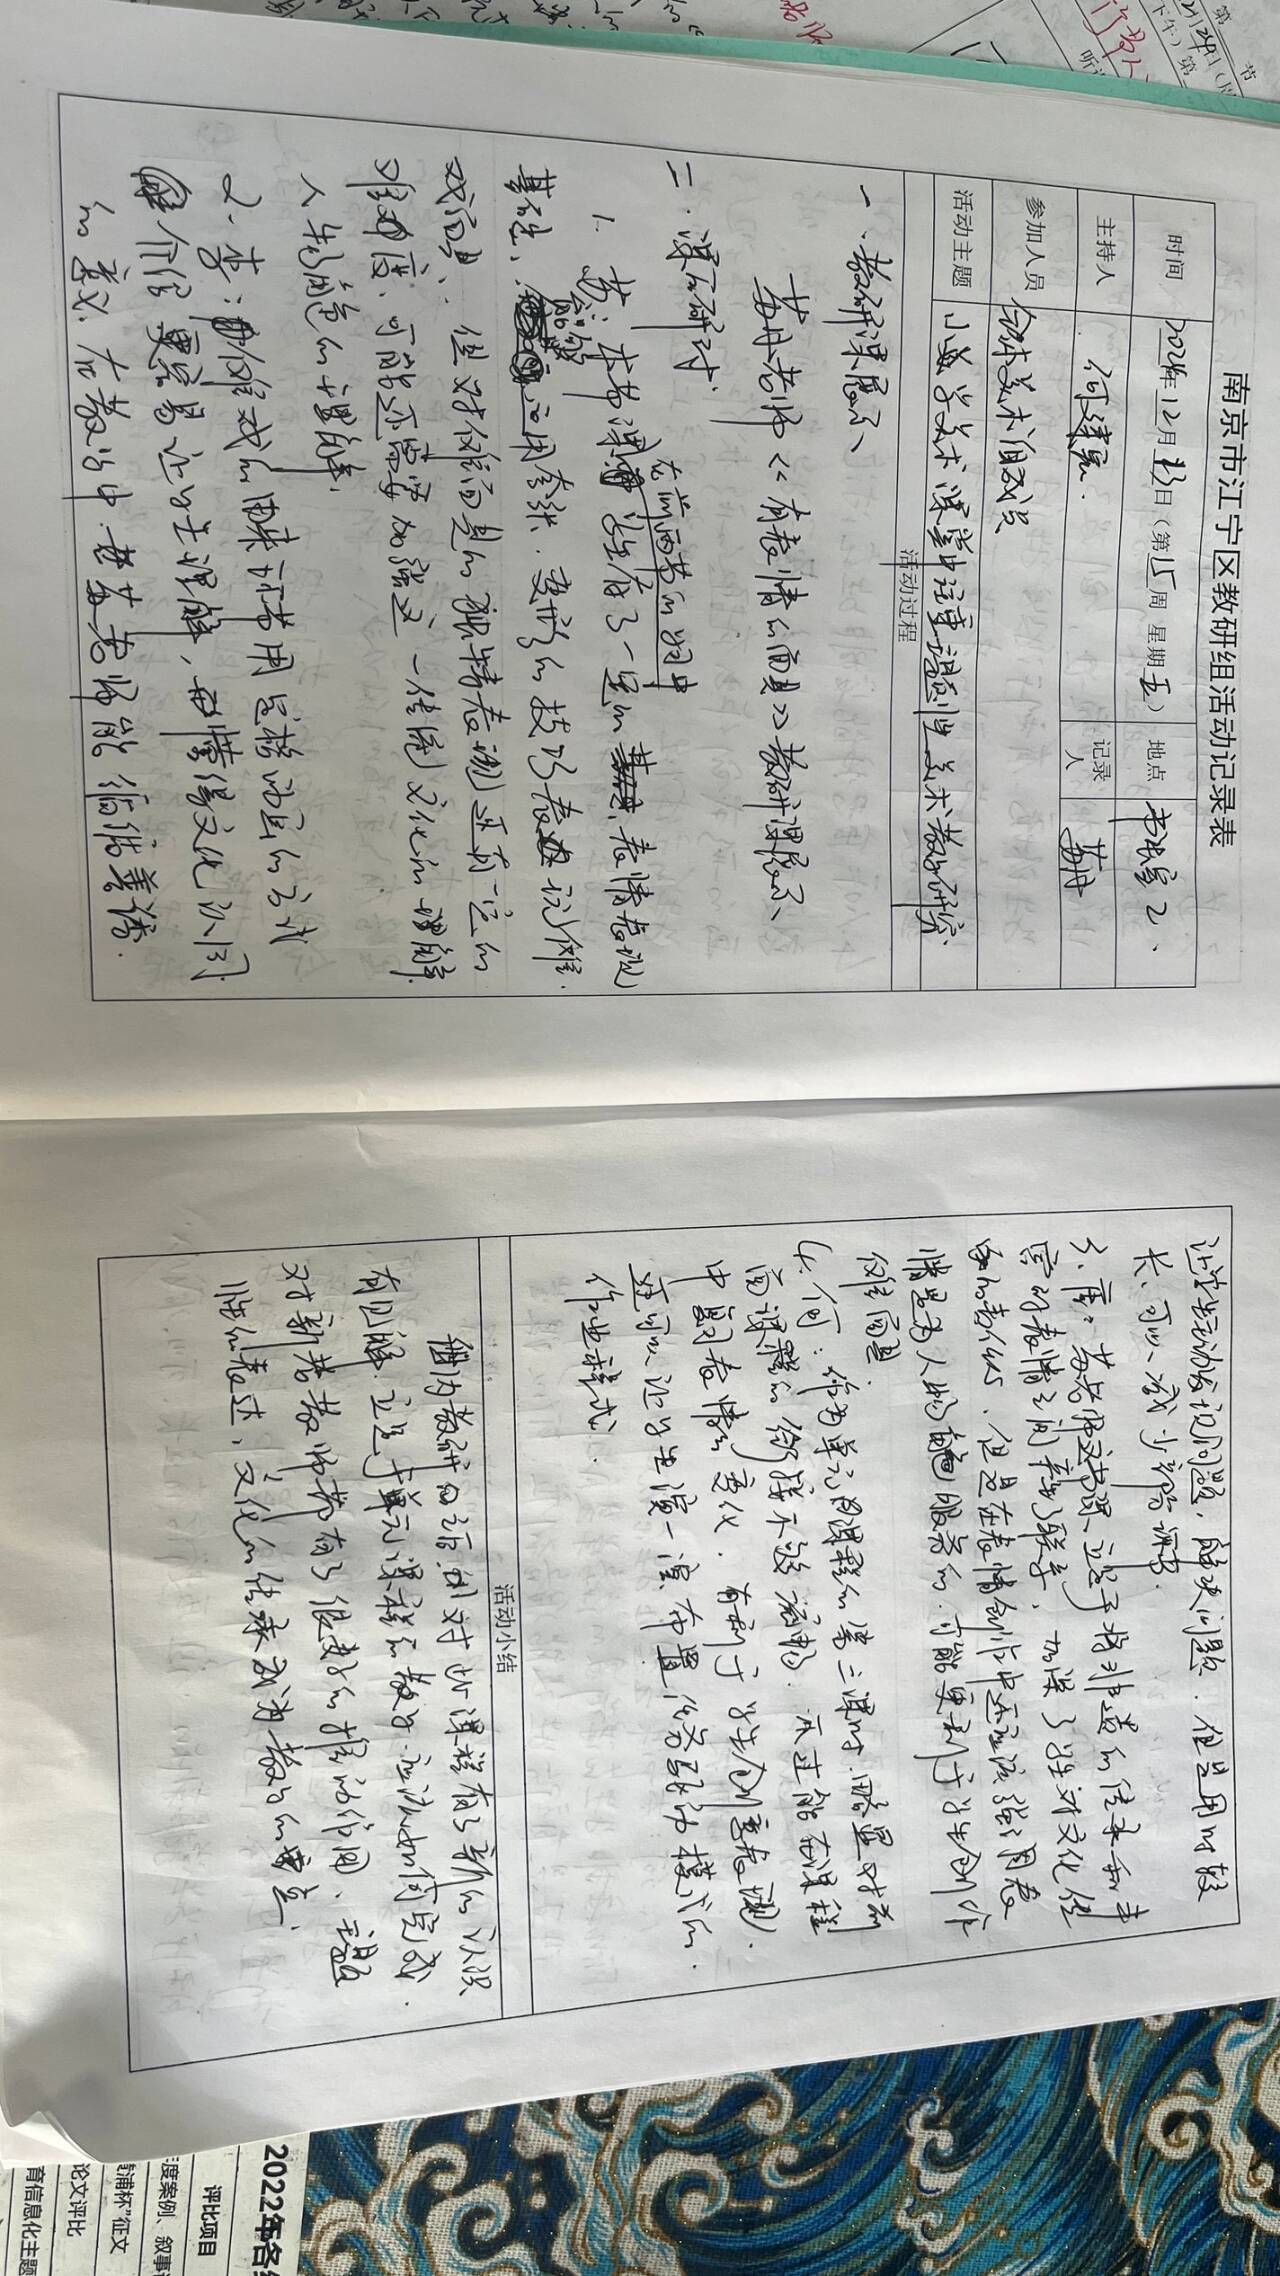 南京市江宁区教研组活动记录表
时间 2024年12月13日（第15周 星期五） 地点 书法室2.
主持人 何建宏. 记录人 苏丹
参加人员 全体美术组成员
活动主题 小学美术课堂中注重主题性美术教学研究
活动过程
一. 教研课展示
苏丹老师《有表情的面具》教研课展示
二. 课后研讨
在前两节的学习中
1. 苏：本节课 学生有了一定的 表情表现
能够
基础、 运用夸张、变形的技巧表现傩
戏面具、但对傩面具的独特表现还有一定的
难度、可能还需要加强这一传统文化的理解.
人物角色的理解.
2. 李：傩戏的由来环节用定格动画的方式
介绍更容易让学生理解，懂得文化认同
的意义. 在教学中. 苏老师能循循善诱.
让学生主动发现问题，解决问题. 但是用时较
长、可以减少部分环节.
3. 唐：苏老师这节课、立足于将非遗的传承和丰
富的表情之间产生了联系，加深了学生对文化传
承的责任心. 但是在表情创作中还应该强调表
情是为人物角色服务的. 可能更利于学生创作
傩面具.
4. 何：作为单元课程的第三课时. 略显对前
面课程的衔接不够流畅. 不过能在课程
中复习表情的变化. 有利于学生创意表现.
还可以让学生演一演. 布置任务驱动模式的.
作业程式.
活动小结
组内教研之后，对此课程有了新的认识
有见解. 立足于单元课程的教学. 应该如何完成.
对新老教师都有了很好的推动作用、主题
性的表达，文化的传承成为教学的重点.
2022年各
评比项目
度案例、叙事
黄浦杯”征文
论文评比
育信息化主题
第 节
12月24日（
下午）第